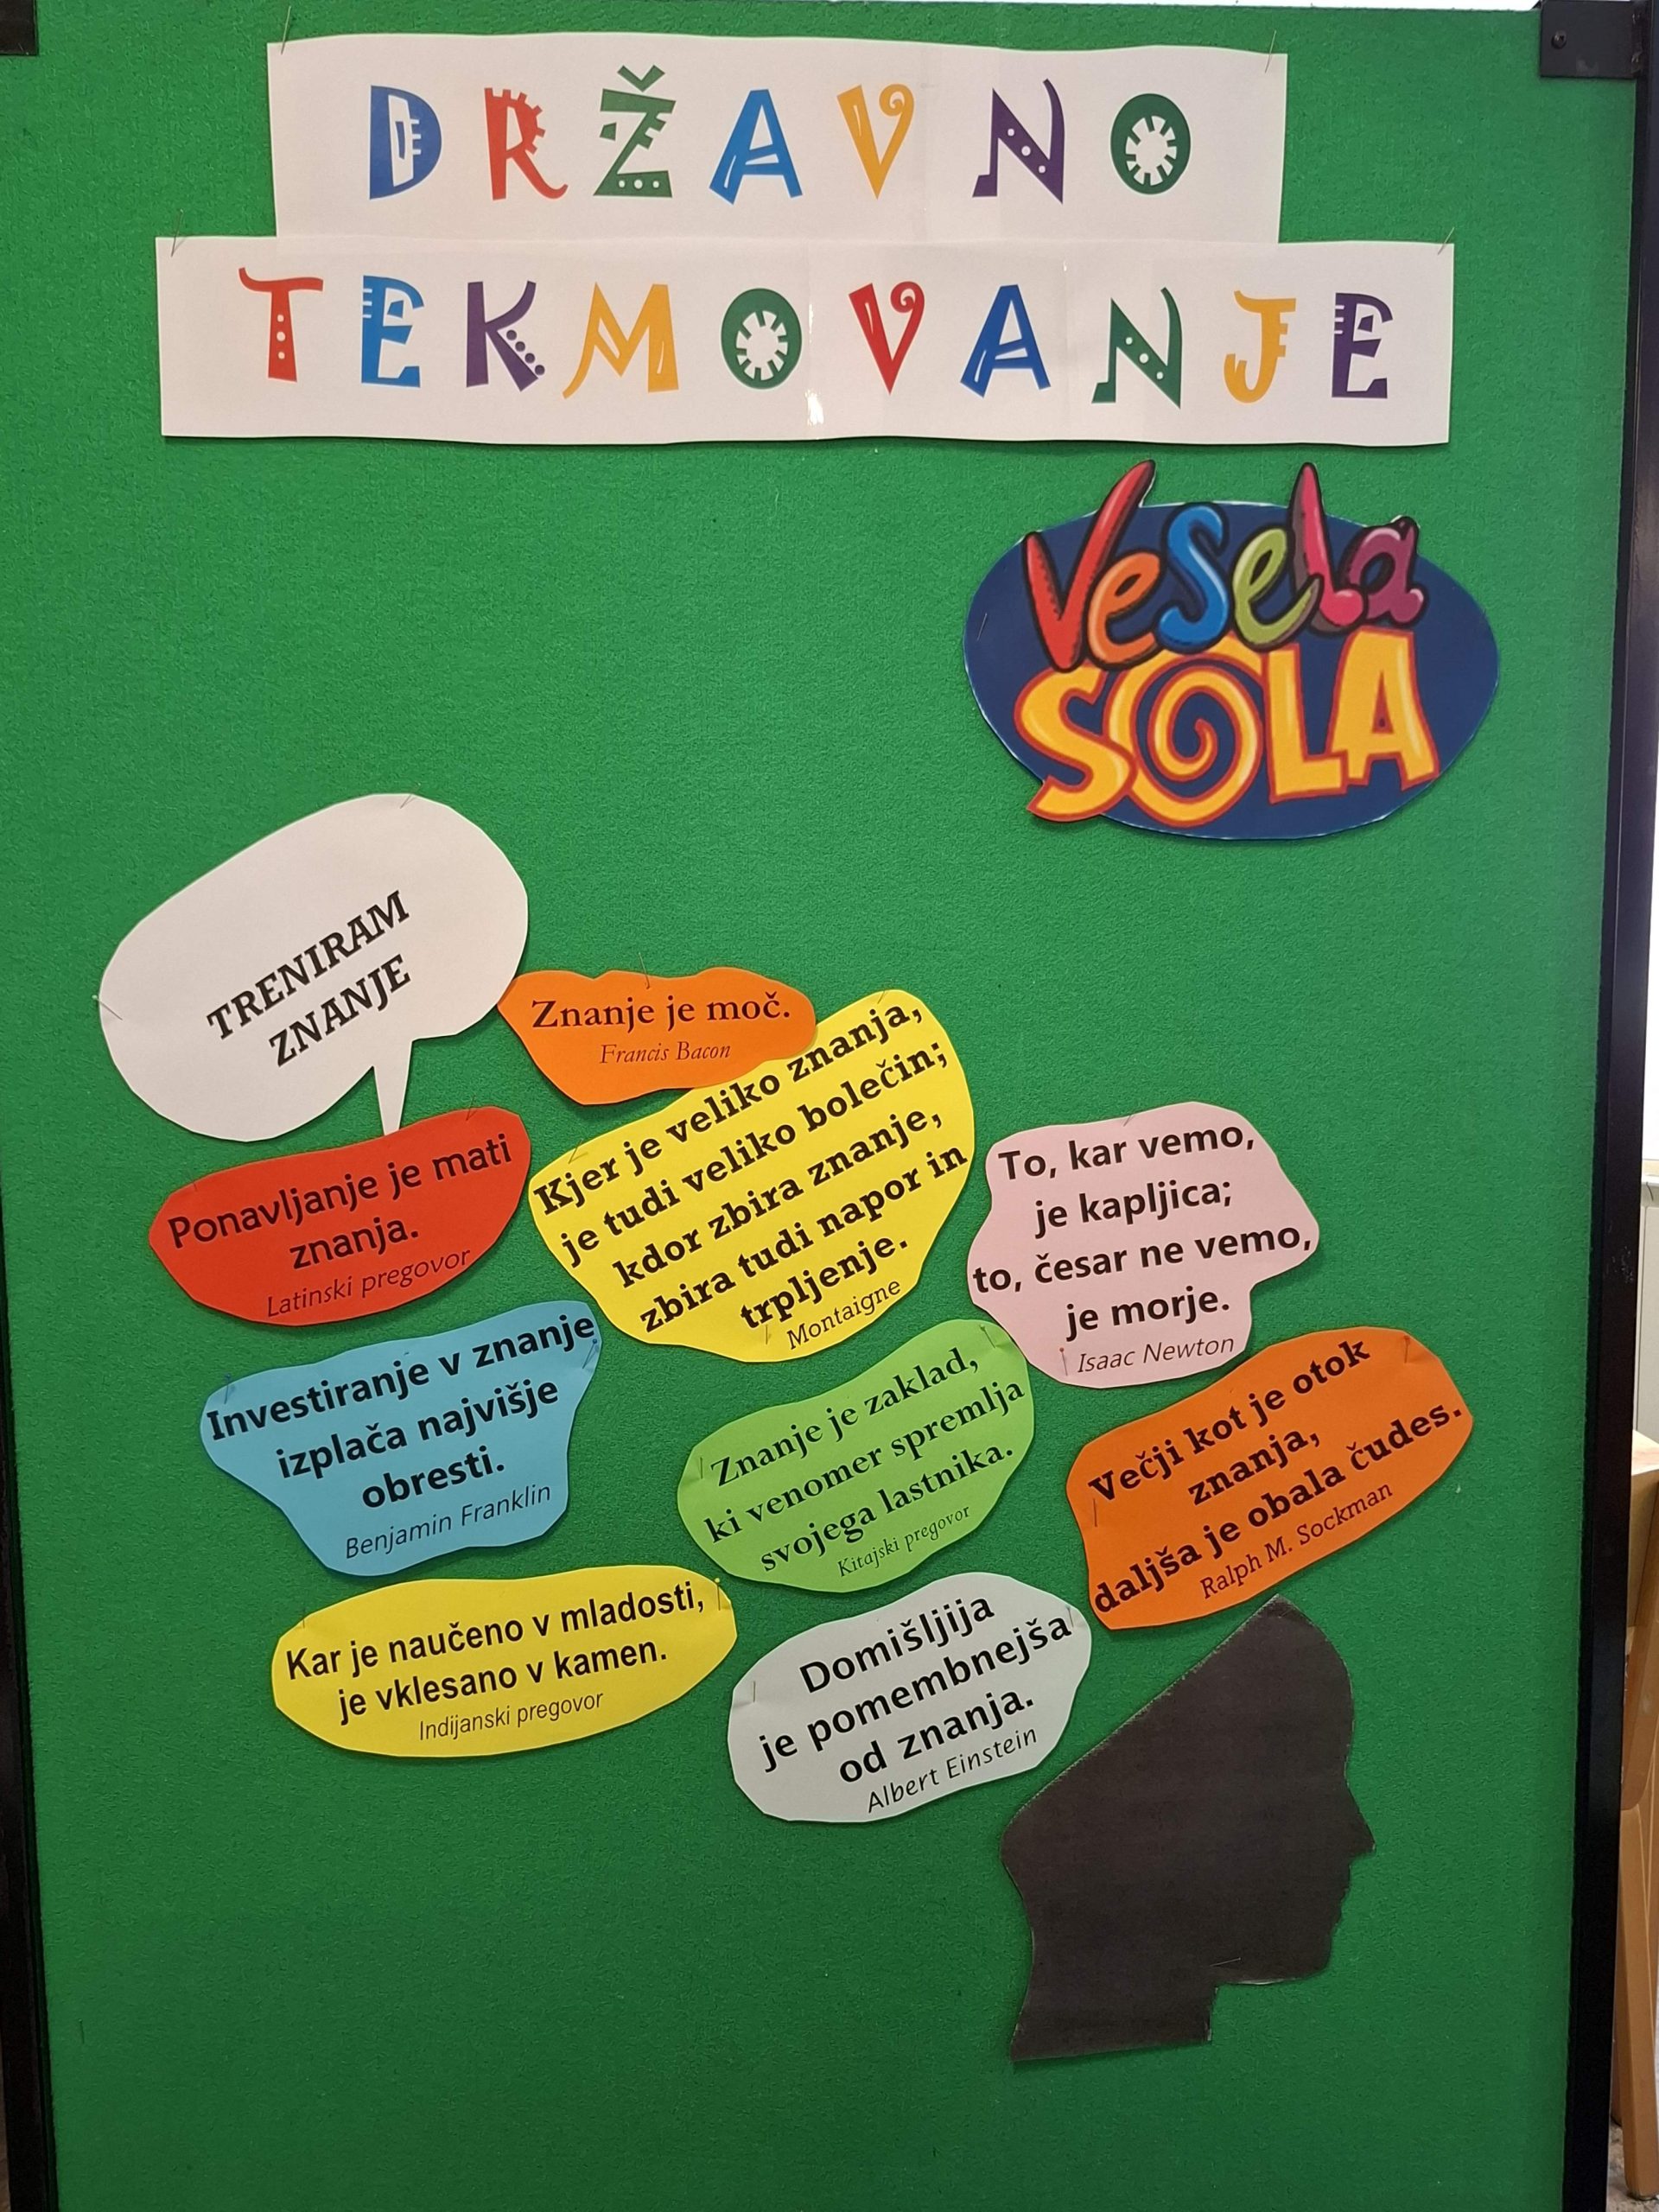 DRŽAVNO
TEKMOVANJE
Vesela
ŠOLA
TRENIRAM
ZNANJE
Znanje je moč.
Francis Bacon
Ponavljanje je mati
znanja.
Latinski pregovor
Kjer je veliko znanja,
je tudi veliko bolečin;
kdor zbira znanje,
zbira tudi napor in
trpljenje.
Montaigne
To, kar vemo,
je kapljica;
to, česar ne vemo,
je morje.
Isaac Newton
Investiranje v znanje
izplača najvišje
obresti.
Benjamin Franklin
Znanje je zaklad,
ki venomer spremlja
svojega lastnika.
Kitajski pregovor
Večji kot je otok
znanja,
daljša je obala čudes.
Ralph M. Sockman
Kar je naučeno v mladosti,
je vklesano v kamen.
Indijanski pregovor
Domišljija
je pomembnejša
od znanja.
Albert Einstein